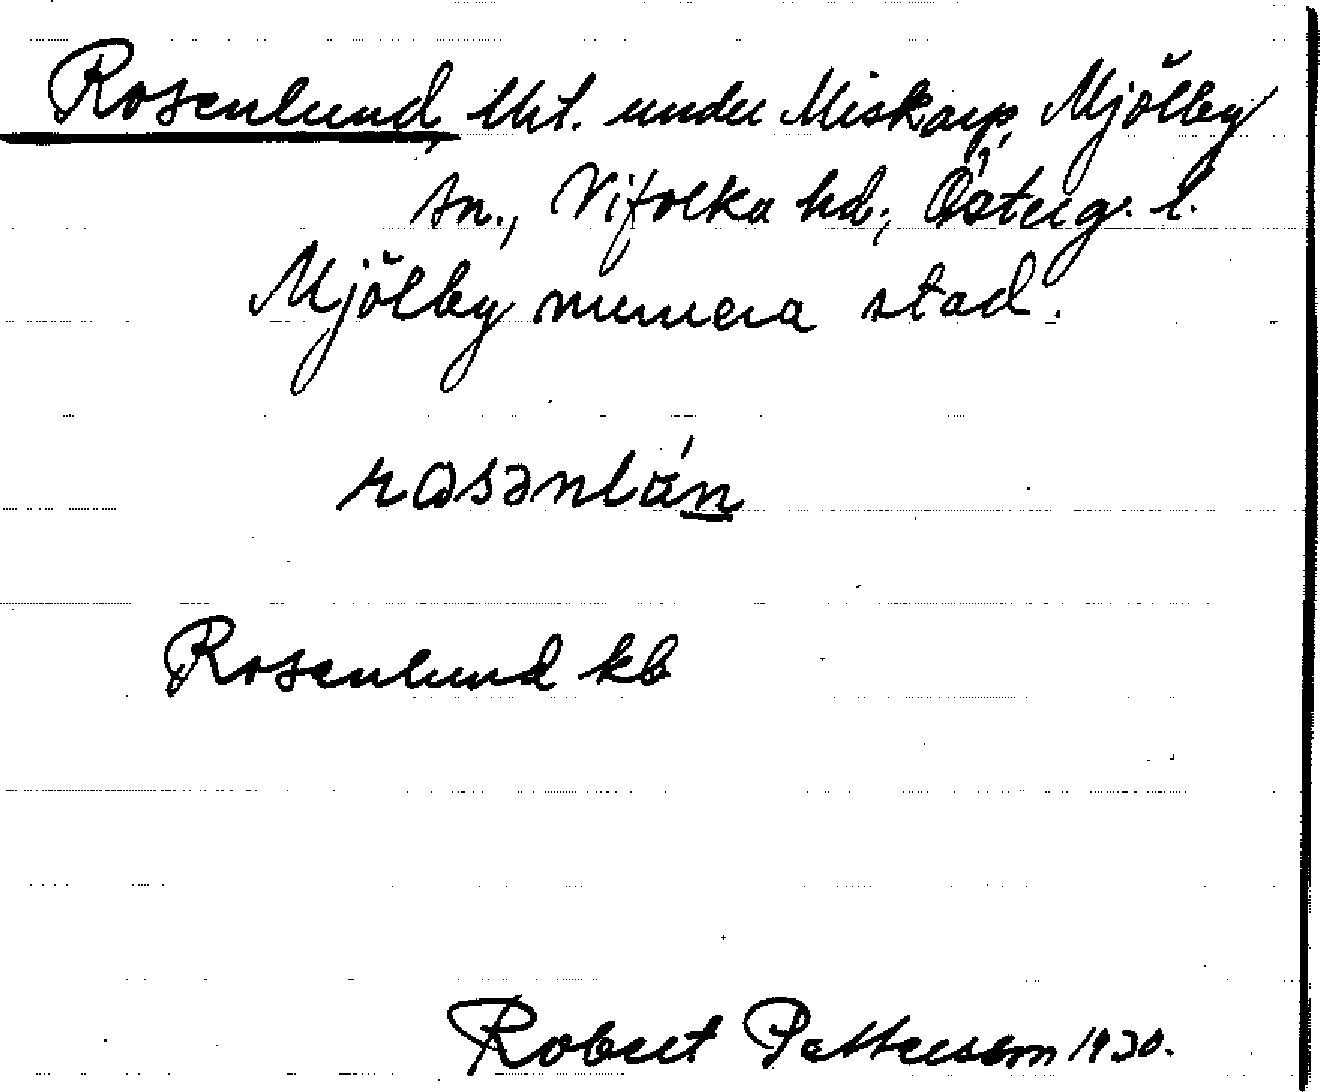 Rosenlund, lht. under Miskarp, Mjölby
sn., Vifolka hd., Österg. l.
Mjölby numera stad.
rosənlán
Rosenlund kb
Robert Petterson 1930.